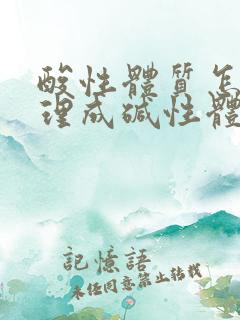 酸性體質怎
理成碱性體
記憶語
未任同意禁止转载